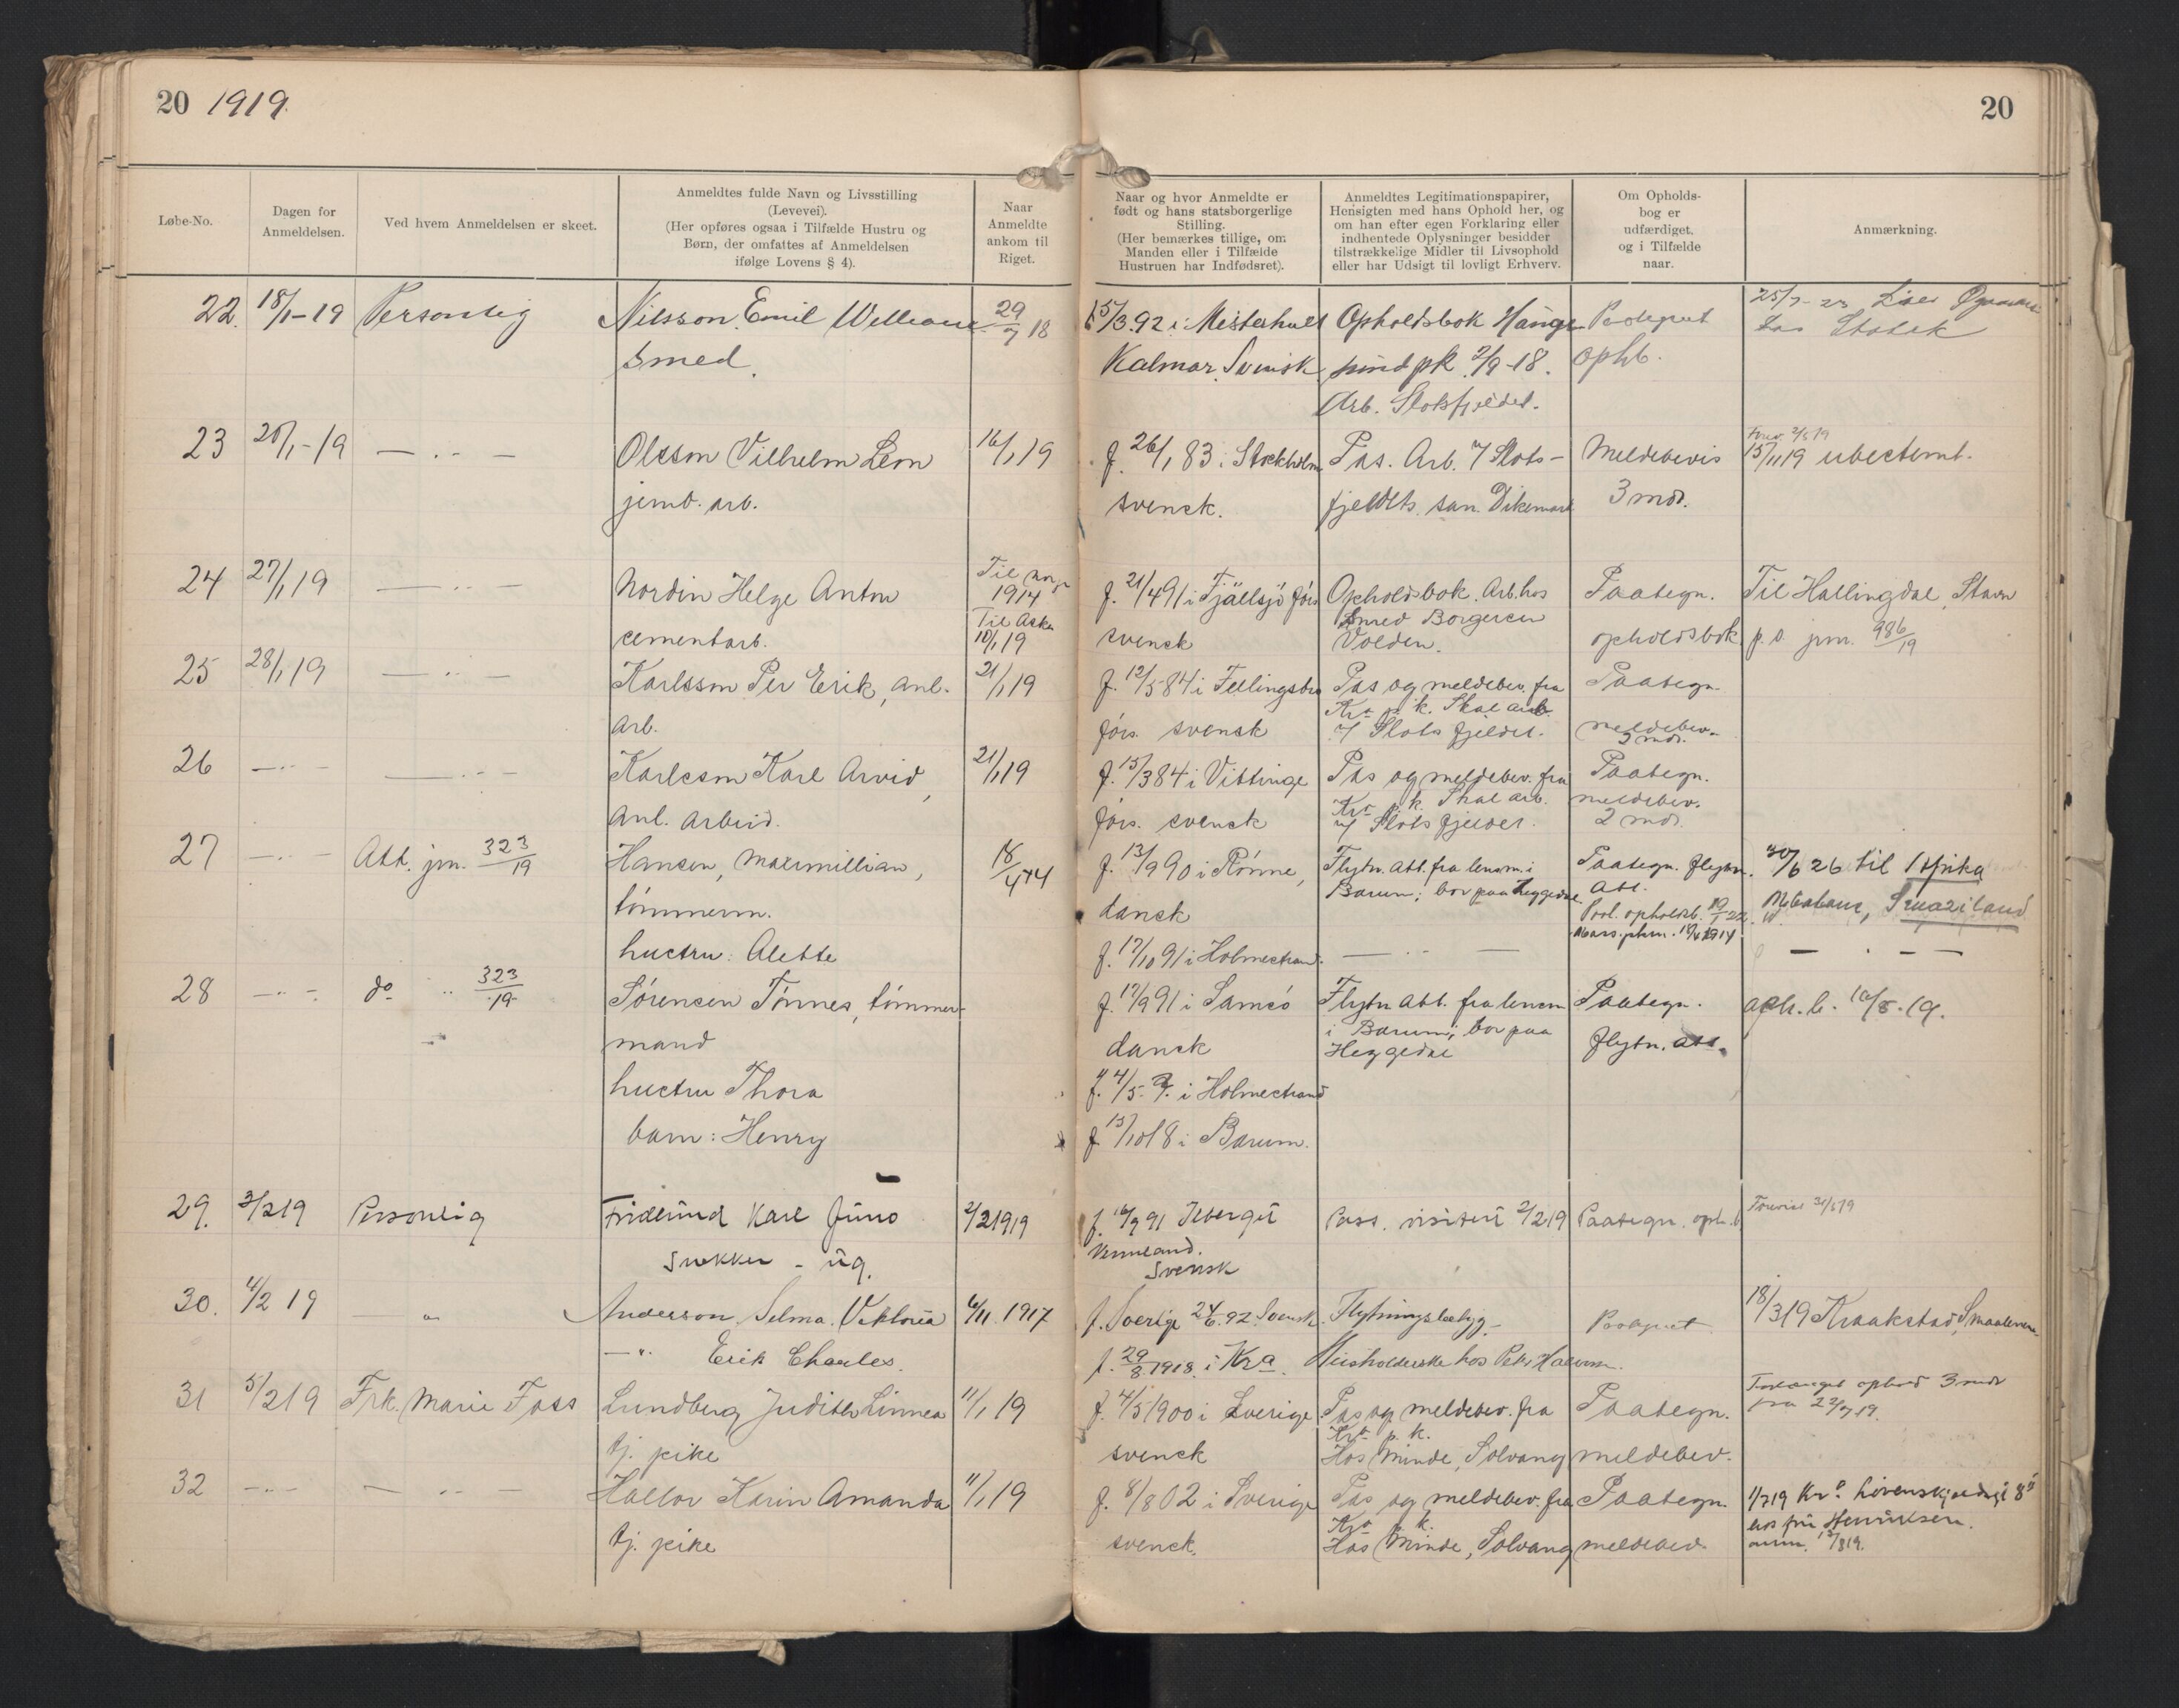 20 1919.
20
Løbe-No.
Dagen for
Anmeldelsen.
Ved hvem Anmeldelsen er skeet.
Anmeldtes fulde Navn og Livsstilling
(Levevei).
(Her opføres ogsaa i Tilfælde Hustru og
Børn, der omfattes af Anmeldelsen
ifølge Lovens § 4).
Naar
Anmeldte
ankom til
Riget.
Naar og hvor Anmeldte er
født og hans statsborgerlige
Stilling.
(Her bemærkes tillige, om
Manden eller i Tilfælde
Hustruen har Indfødsret).
Anmeldtes Legitimationspapirer,
Hensigten med hans Ophold her, og
om han efter egen Forklaring eller
indhentede Oplysninger besidder
tilstrækkelige Midler til Livsophold
eller har Udsigt til lovligt Erhverv.
Om Opholds-
bog er
udfærdiget,
og i Tilfælde
naar.
Anmærkning.
22. 18/1-19 Personlig Nilsson Emil William 29/7 18 15/3.92 i Misterhult Opholdsbok
smed. Kalmar. Svensk pk. 2/9-18. opht.
Arb. Slotsfjeldet.
23 20/1-19 — ·· — Olsson Vilhelm Leon 16/1 19 f. 26/1 83 i Stockholm Pas. Arb. v/ Slots- Meldebevis 15/11 19 ubestemt.
jernb. arb. svensk. fjeldets san. Dikemark 3 mdr.
24 27/1 19 — ·· — Nordin Helge Anton Til Norge 1914 f. 21/4 91 i Fjällsjö förs Opholdsbok. Arb. hos Paategn. Til Hallingdal, Stavn
cementarb. Til Asker 10/1 19 svensk Borgersen Volden. opholdsbok p. s. jrn. 986/19
25 28/1 19 — ·· — Karlsson Per Erik, anl. 21/1 19 f. 12/5 84 i Fellingsbro Pas og meldebev. fra Paategn.
arb. förs. svensk Kra p. k. Skal arb. v/ Slotsfjeldet. meldebev. 2 mdr.
26 — ·· — — ·· — Karlsson Karl Arvid, 21/1 19 f. 15/3 84 i Vittinge Pas og meldebev. fra Paategn.
anl. arbeid. förs. svensk Kra p. k. Skal arb. v/ Slotsfjeldet. meldebev. 2 mdr.
27 — ·· — Att. jrn. 323/19 Hansen, Maximillian, 18/4 14 f. 13/9 90 i Rønne, Flytn. att. fra lensm. i Paategn. flytn. 30/6 26 til Afrika
tømmerm. dansk Bærum; bor paa Heggedal. att. Mbabane, Swaziland
hustru: Alette f. 17/10 91 i Holmestrand. — ·· — — · — —
28 — ·· — do ·· 323/19 Sørensen Tønnes, tømmer- f. 17/9 91 i Samsö Flytn. att. fra lensm. Paategn. oph. b. 10/5-19.
mand dansk i Bærum; bor paa Heggedal flytn. att.
hustru Thora f. 4/5 i Holmestrand
barn: Henry f. 13/10 18 i Bærum.
29. 3/2 19 Personlig Fridlund Karl Juno 2/2 1919 f. 16/9 91 Pass. visitert 2/2 19 Paategn. oph.b.
Snekker - ug. Vermland. Svensk
30. 4/2 19 — " Anderson, Selma. Viktoria 6/11. 1917 f. Sverige 24/6.92. Svensk. Flytningsbetyg. Paategnet 18/3 19 Kraakstad, Smaalenene
— " Erik Charles. f. 29/8 1918. i Kra. Husholderske hos
31 5/2 19 Frk. Marie Foss Lundberg Judith Linnea 11/1 19 f. 4/5 1900 i Sverige Pas og meldebev. fra Paategn. Forlænget ophold 3 mdr
tj. pike svensk Kra p. k. Hos Minde, Solvang meldebev. fra 22/7 19.
32 — ·· — — ·· — Hallor Karin Amanda 11/1 19 f. 8/8 02 i Sverige Pas og meldebev. fra Paategn. 1/7 19 Kra. Løvenskjoldsgt 8
tj. pike svensk. Kra p. k. Hos Minde, Solvang meldebev. hos fru Henriksen.